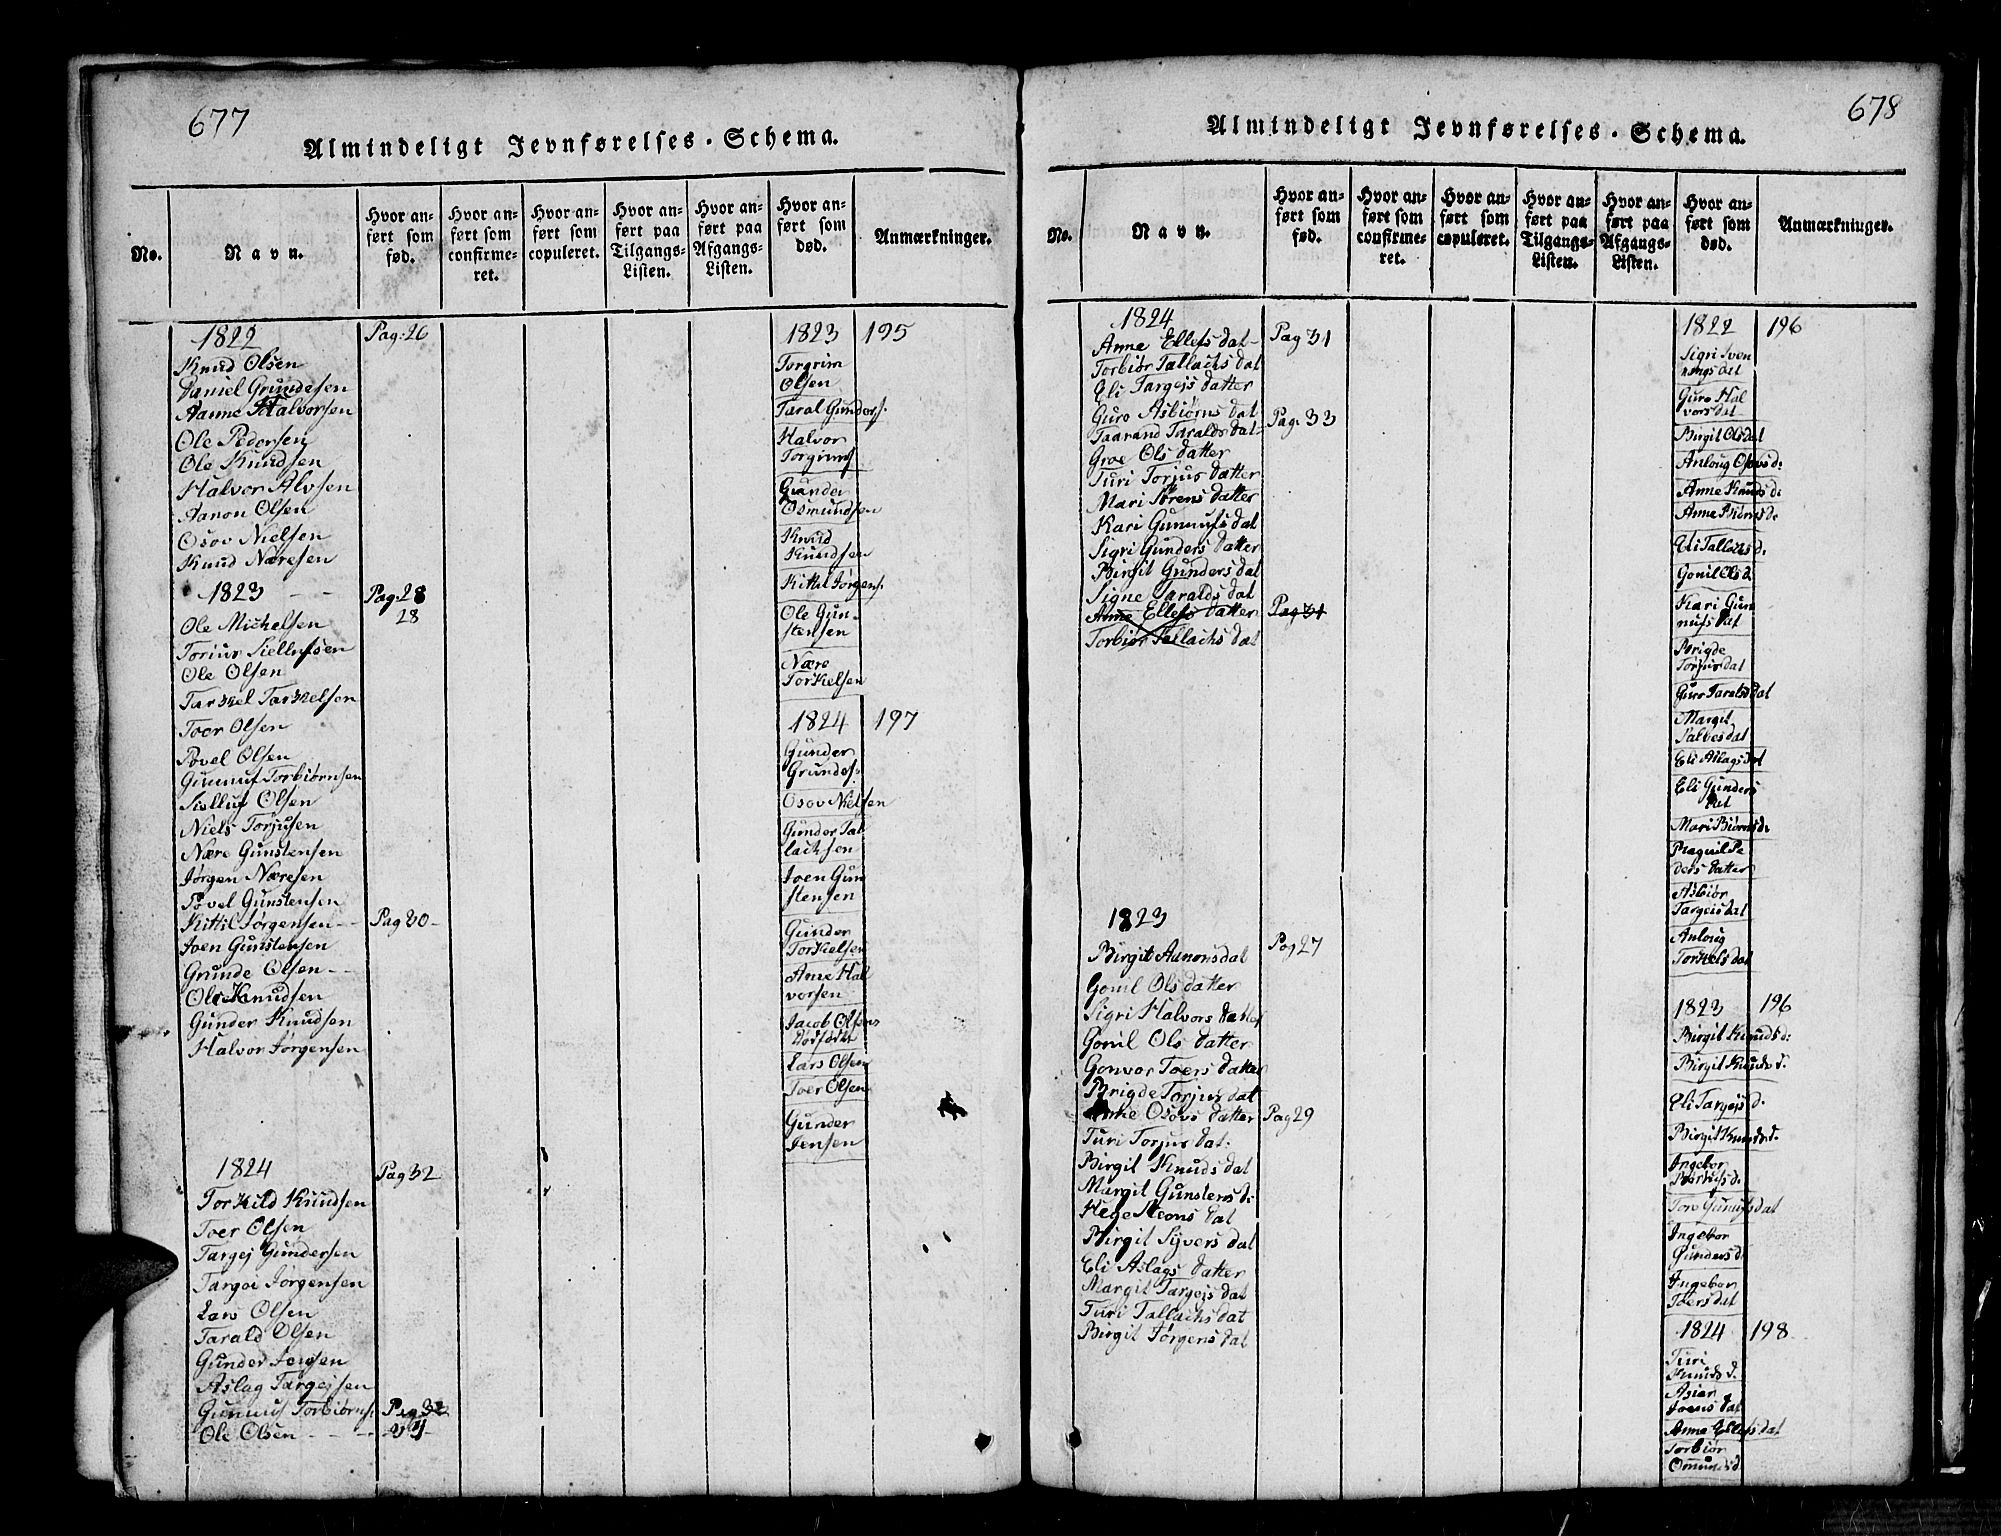 677
Almindeligt Jevnførelses-Schema.
No.
Navn.
Hvor anført som fød.
Hvor anført som confirmeret.
Hvor anført som copuleret.
Hvor anført paa Tilgangs-Listen.
Hvor anført paa Afgangs-Listen.
Hvor anført som død.
Anmærkninger.
1822 Pag: 26
Knud Olsen
Daniel Grundesen
Aanne Halvorsen
Ole Pedersen
Ole Knudsen
Halvor Alvsen
Aanon Olsen
Osov Nielsen
Knud Næresen
1823 Pag: 28
28
Ole Michelsen
Torius Siellufsen
Ole Olsen
Tarkel Tarkelsen
Toer Olsen
Povel Olsen
Gunnuf Torbiørnsen
Siølluf Olsen
Niels Torjusen
Nære Gunstensen
Jørgen Næresen
Povel Gunstensen
Kittil Jørgensen Pag 30
Joen Gunstensen
Grunde Olsen
Ole Knudsen
Gunder Knudsen
Halvor Jørgensen
1824 Pag 32
Torkild Knudsen
Toer Olsen
Targej Gundersen
Targei Jørgensen
Lars Olsen
Tarald Olsen
Gunder Jensen
Aslag Targejsen
Gunnuf Torbiørns: Pag 32
Ole Olsen
1823 195
Torgrim
Olsen
Taral Gunders:
Halvor
Torgrims
Gunder
Osmundsen
Knud
Knudsen
Kittil Jørgens:
Ole Gun-
stensen
Nære
Torkelsen
1824 197
Gunder
Grundes:
Osov Nielsen
Gunder Tal
lachsen
Joen Gun
stensen
Gunder
Torkelsen
Anne Hal
vorsen
Jacob Olsens
Dødfødte
Lars Olsen
Toer Olsen
Gunder
Jensen
678
Almindeligt Jevnførelses-Schema.
No.
Navn.
Hvor anført som fød.
Hvor anført som confirmeret.
Hvor anført som copuleret.
Hvor anført paa Tilgangs-Listen.
Hvor anført paa Afgangs-Listen.
Hvor anført som død.
Anmærkninger.
1824
Anne Ellefs dat Pag 31
Torbiør Tallachs dat
Eli Targejs datter
Guro Asbiørns dat
Taarand Taralds dat Pag. 33
Groe Ols datter
Turi Torjus datter
Mari Sørens datter
Kari Gunnufs dat
Sigri Gunders datter
Birgit Gunders dat
Signe Taralds dat
Anne Ellefs datter Pag 31
Torbiør Tallachs dat
1823
Birgit Aanonsdat Pag 27
Gonil Olsdatter
Sigri Halvors datter
Gonil Ols datter
Gonvor Toers datter
Brigde Torjus dat
Anne Osovs datter Pag 29
Turi Torjus dat.
Birgit Knuds dat
Margit Gunstens d:
Hege Steens dat
Birgit Syvers dat
Eli Aslags datter
Margit Targejs dat
Turi Tallachs dat
Birgit Jørgens dat
1822 196
Sigri Sven
nungs dat
Guro Hal
vors dat
Birgit Olsdat
Anloug Osovs d:
Anne Knuds d:
Anne Biørns d:
Eli Tallachs d.
Gonil Ols d
Kari Gun
nufs dat
Brigde
Torjus dat
Guro Taralds dat
Margit
Salves dat
Eli Aslags dat
Eli Gunders
dat
Mari Biørns d:
Ragnil Pe
ders datter
Asbiør
Targeis dat
Anloug
Torkels dat
1823 196
Birgit Knuds d:
Birgit Knuds d.
Eli Targejs d.
Birgit Knuds d.
Ingebor
Tore Gunufs dat
Ingebor
Gunders d.
Ingebor
Toers dat
1824 198
Turi
Knuds d.
Joens dat
Anne Ellefs dat
Torbiør
Omunds d